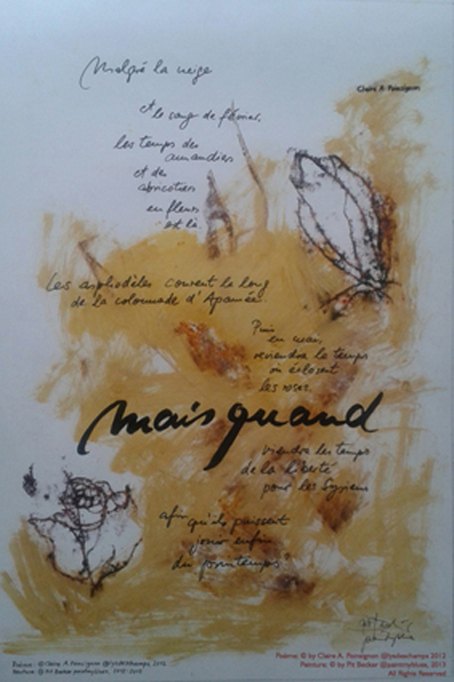 Malgré la neige
Claire A. Poinsignon
et le sang de février,
les temps des
amandiers
et des
abricotiers
en fleurs
est là.
Les asphodèles courent le long
de la colonnade d'Apamée.
Puis
en mai,
reviendra le temps
où éclosent
les roses.
mais quand
viendra les temps
de la liberté
pour les Syriens
afin qu'ils puissent
jouir enfin
du printemps?
Poème: © by Claire A. Poinsignon @lysdeschamps 2012
Peinture: © by Pit Becker @paintmyblues, 2013
All Rights Reserved
Poème: © Claire A. Poinsignon @lysdeschamps, 2012